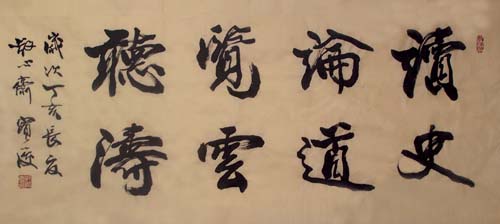 讀史
論道
覽雲
聽濤
歲次丁亥長夏
散心齋